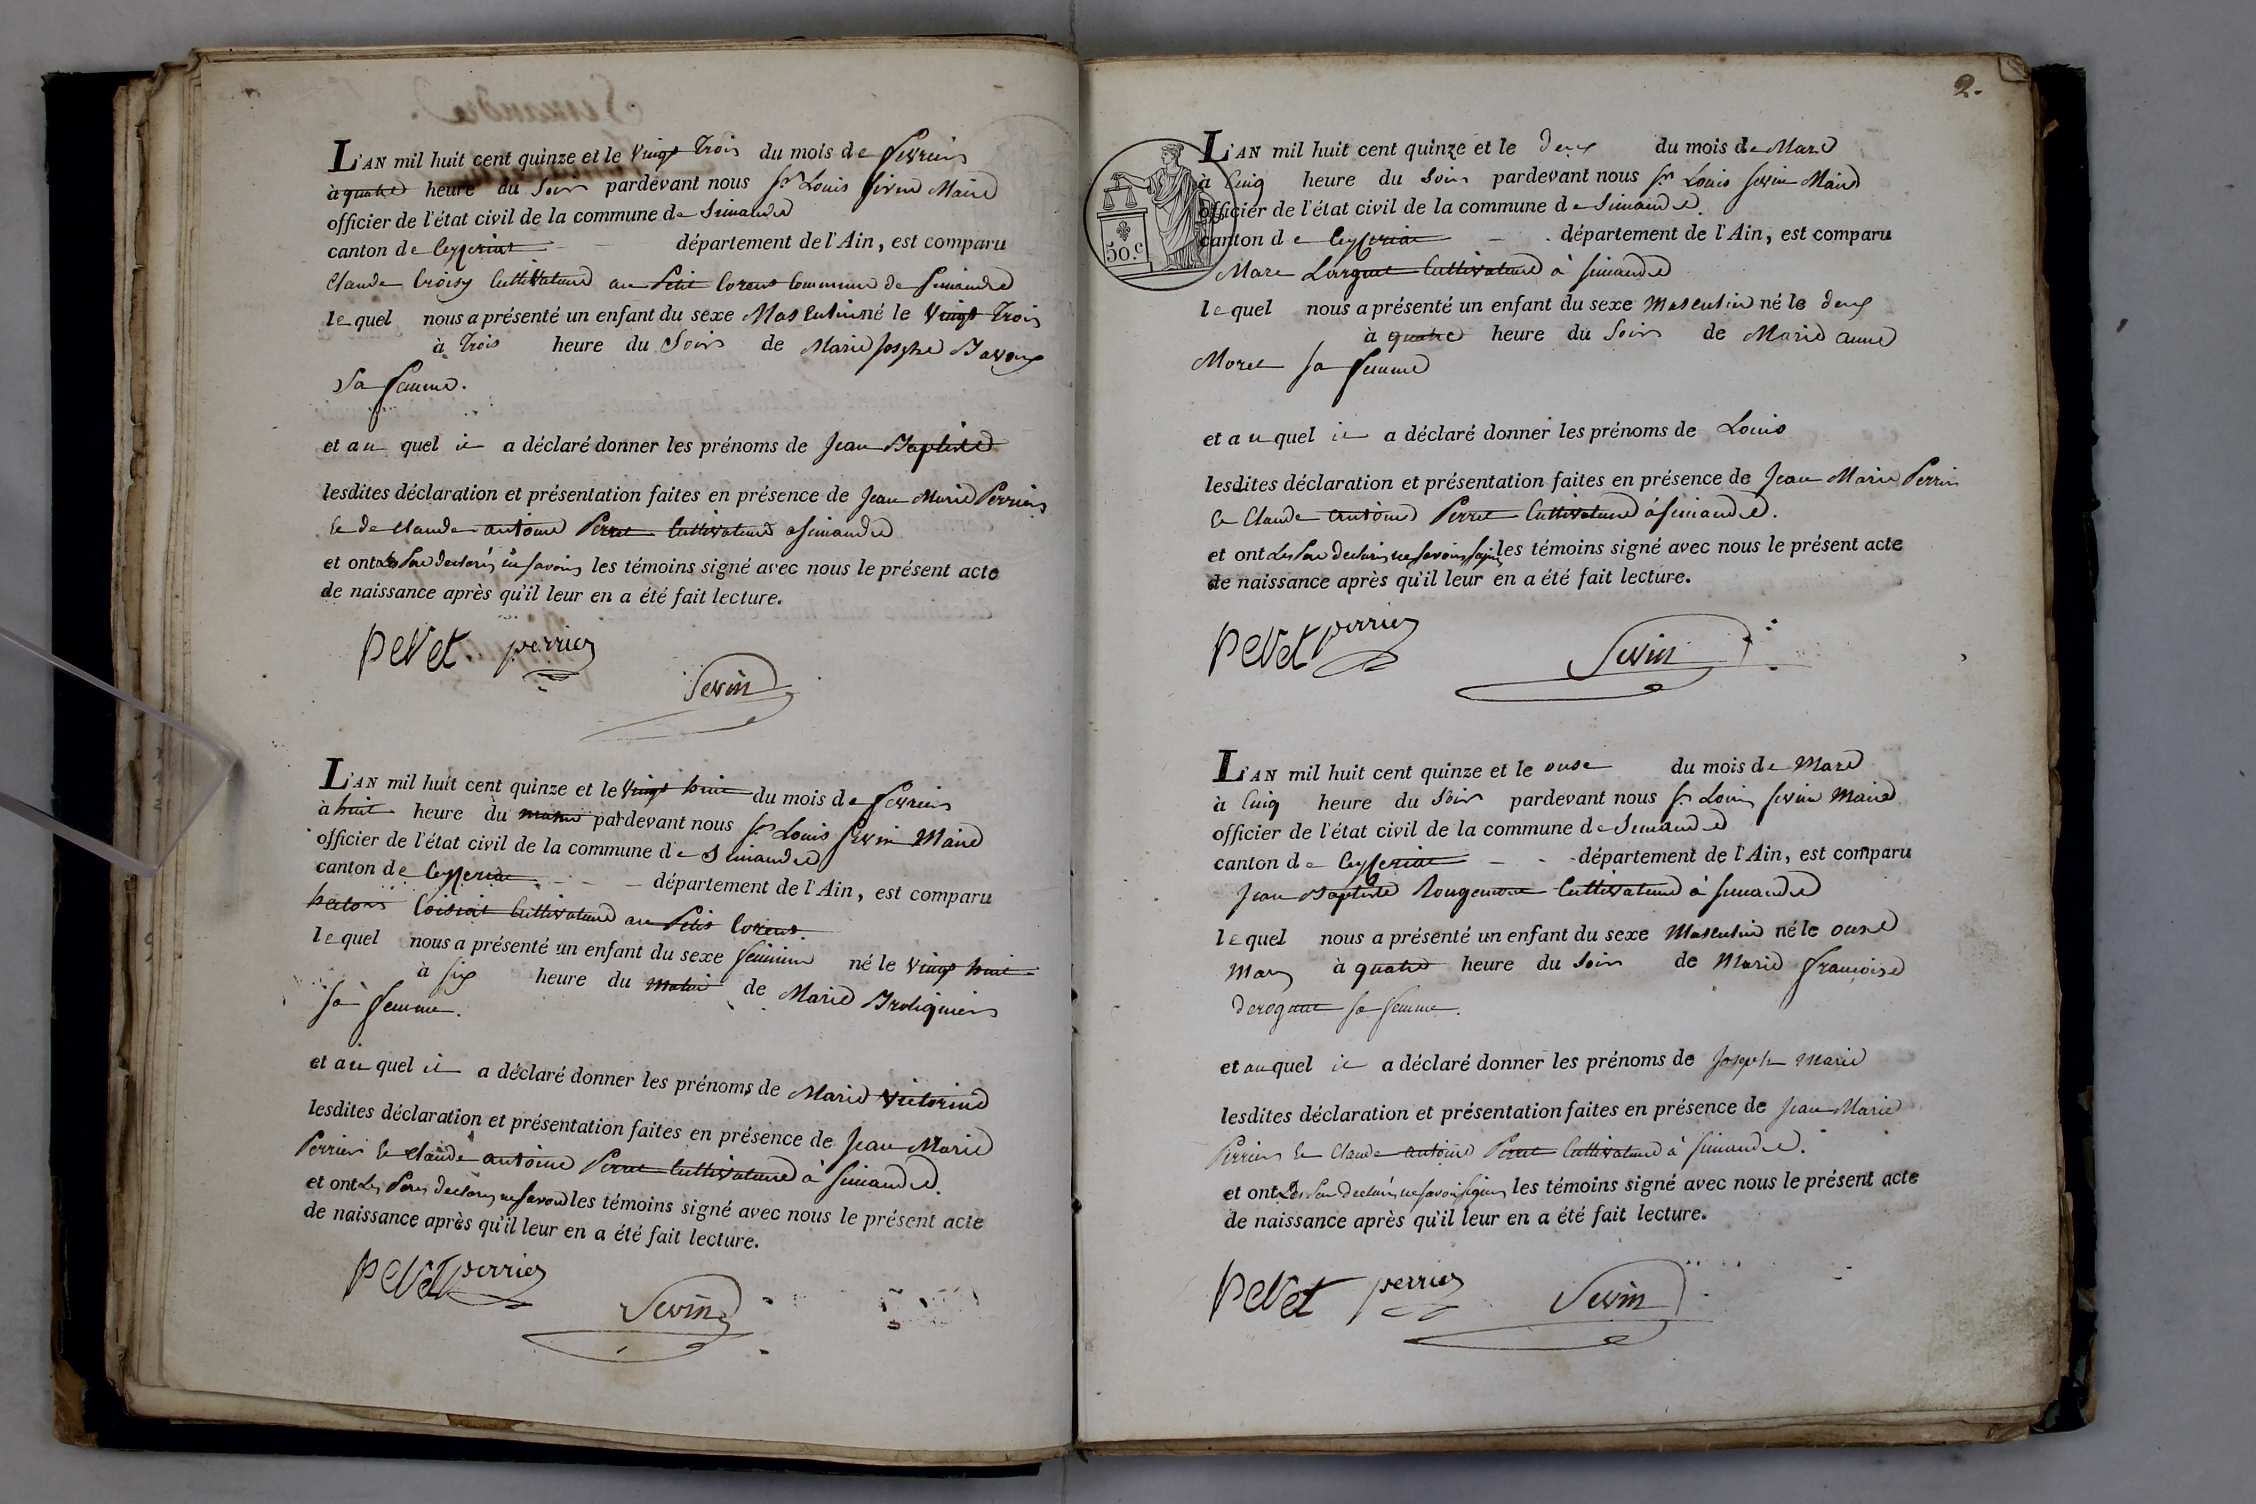 L'AN mil huit cent quinze et le vingt trois du mois de fevrier
à quatre heure du Soir pardevant nous Sr Louis Sevin Maire
officier de l'état civil de la commune de Simandre
canton de Ceyzeriat département de l'Ain, est comparu
Claude Croisy Cultivateur au Petit Corent Commune de Simandre
lequel nous a présenté un enfant du sexe Masculin né le vingt trois
à trois heure du Soir de Marie Josephe Bavoux
sa femme.
et au quel il a déclaré donner les prénoms de Jean Baptiste
lesdites déclaration et présentation faites en présence de Jean Marie Perrier
et de Claude antoine Perret Cultivateurs a Simandre
et ont les témoins signé avec nous le présent acte
de naissance après qu'il leur en a été fait lecture.
peret perrier
Sevin
L'AN mil huit cent quinze et le vingt huit du mois de fevrier
à huit heure du matin pardevant nous Sr Louis Sevin Maire
officier de l'état civil de la commune de Simandre
canton de Ceyzeriat département de l'Ain, est comparu
Coisiat Cultivateur au Petit Corent.
lequel nous a présenté un enfant du sexe feminin né le vingt huit
à six heure du matin de Marie Broliquier
sa femme.
et au quel il a déclaré donner les prénoms de Marie Victorine
lesdites déclaration et présentation faites en présence de Jean Marie
Perrier et Claude antoine Perret Cultivateurs à Simandre.
et ont les témoins signé avec nous le présent acte
de naissance après qu'il leur en a été fait lecture.
peret perrier
Sevin
2.
50.c
L'AN mil huit cent quinze et le deux du mois de Mars
à Cinq heure du Soir pardevant nous Sr Louis Sevin Maire
officier de l'état civil de la commune de Simandre.
canton de Ceyzeriat département de l'Ain, est comparu
Marc Cultivateur à Simandre
lequel nous a présenté un enfant du sexe Masculin né le deux
à quatre heure du Soir de Marie anne
Morel sa femme
et auquel il a déclaré donner les prénoms de Louis
lesdites déclaration et présentation faites en présence de Jean Marie Perrier
et Claude antoine Perret Cultivateurs à Simandre.
et ont les témoins signé avec nous le présent acte
de naissance après qu'il leur en a été fait lecture.
peret perrier
Sevin
L'AN mil huit cent quinze et le onze du mois de Mars
à Cinq heure du Soir pardevant nous Sr Louis Sevin Maire
officier de l'état civil de la commune de Simandre
canton de Ceyzeriat département de l'Ain, est comparu
Jean Baptiste Rougemont Cultivateur à Simandre
lequel nous a présenté un enfant du sexe Masculin né le onze
Mars à quatre heure du Soir de Marie françoise
sa femme.
et auquel il a déclaré donner les prénoms de Joseph Marie
lesdites déclaration et présentation faites en présence de Jean Marie
Perrier et Claude antoine Perret Cultivateurs à Simandre.
et ont les témoins signé avec nous le présent acte
de naissance après qu'il leur en a été fait lecture.
peret perrier
Sevin